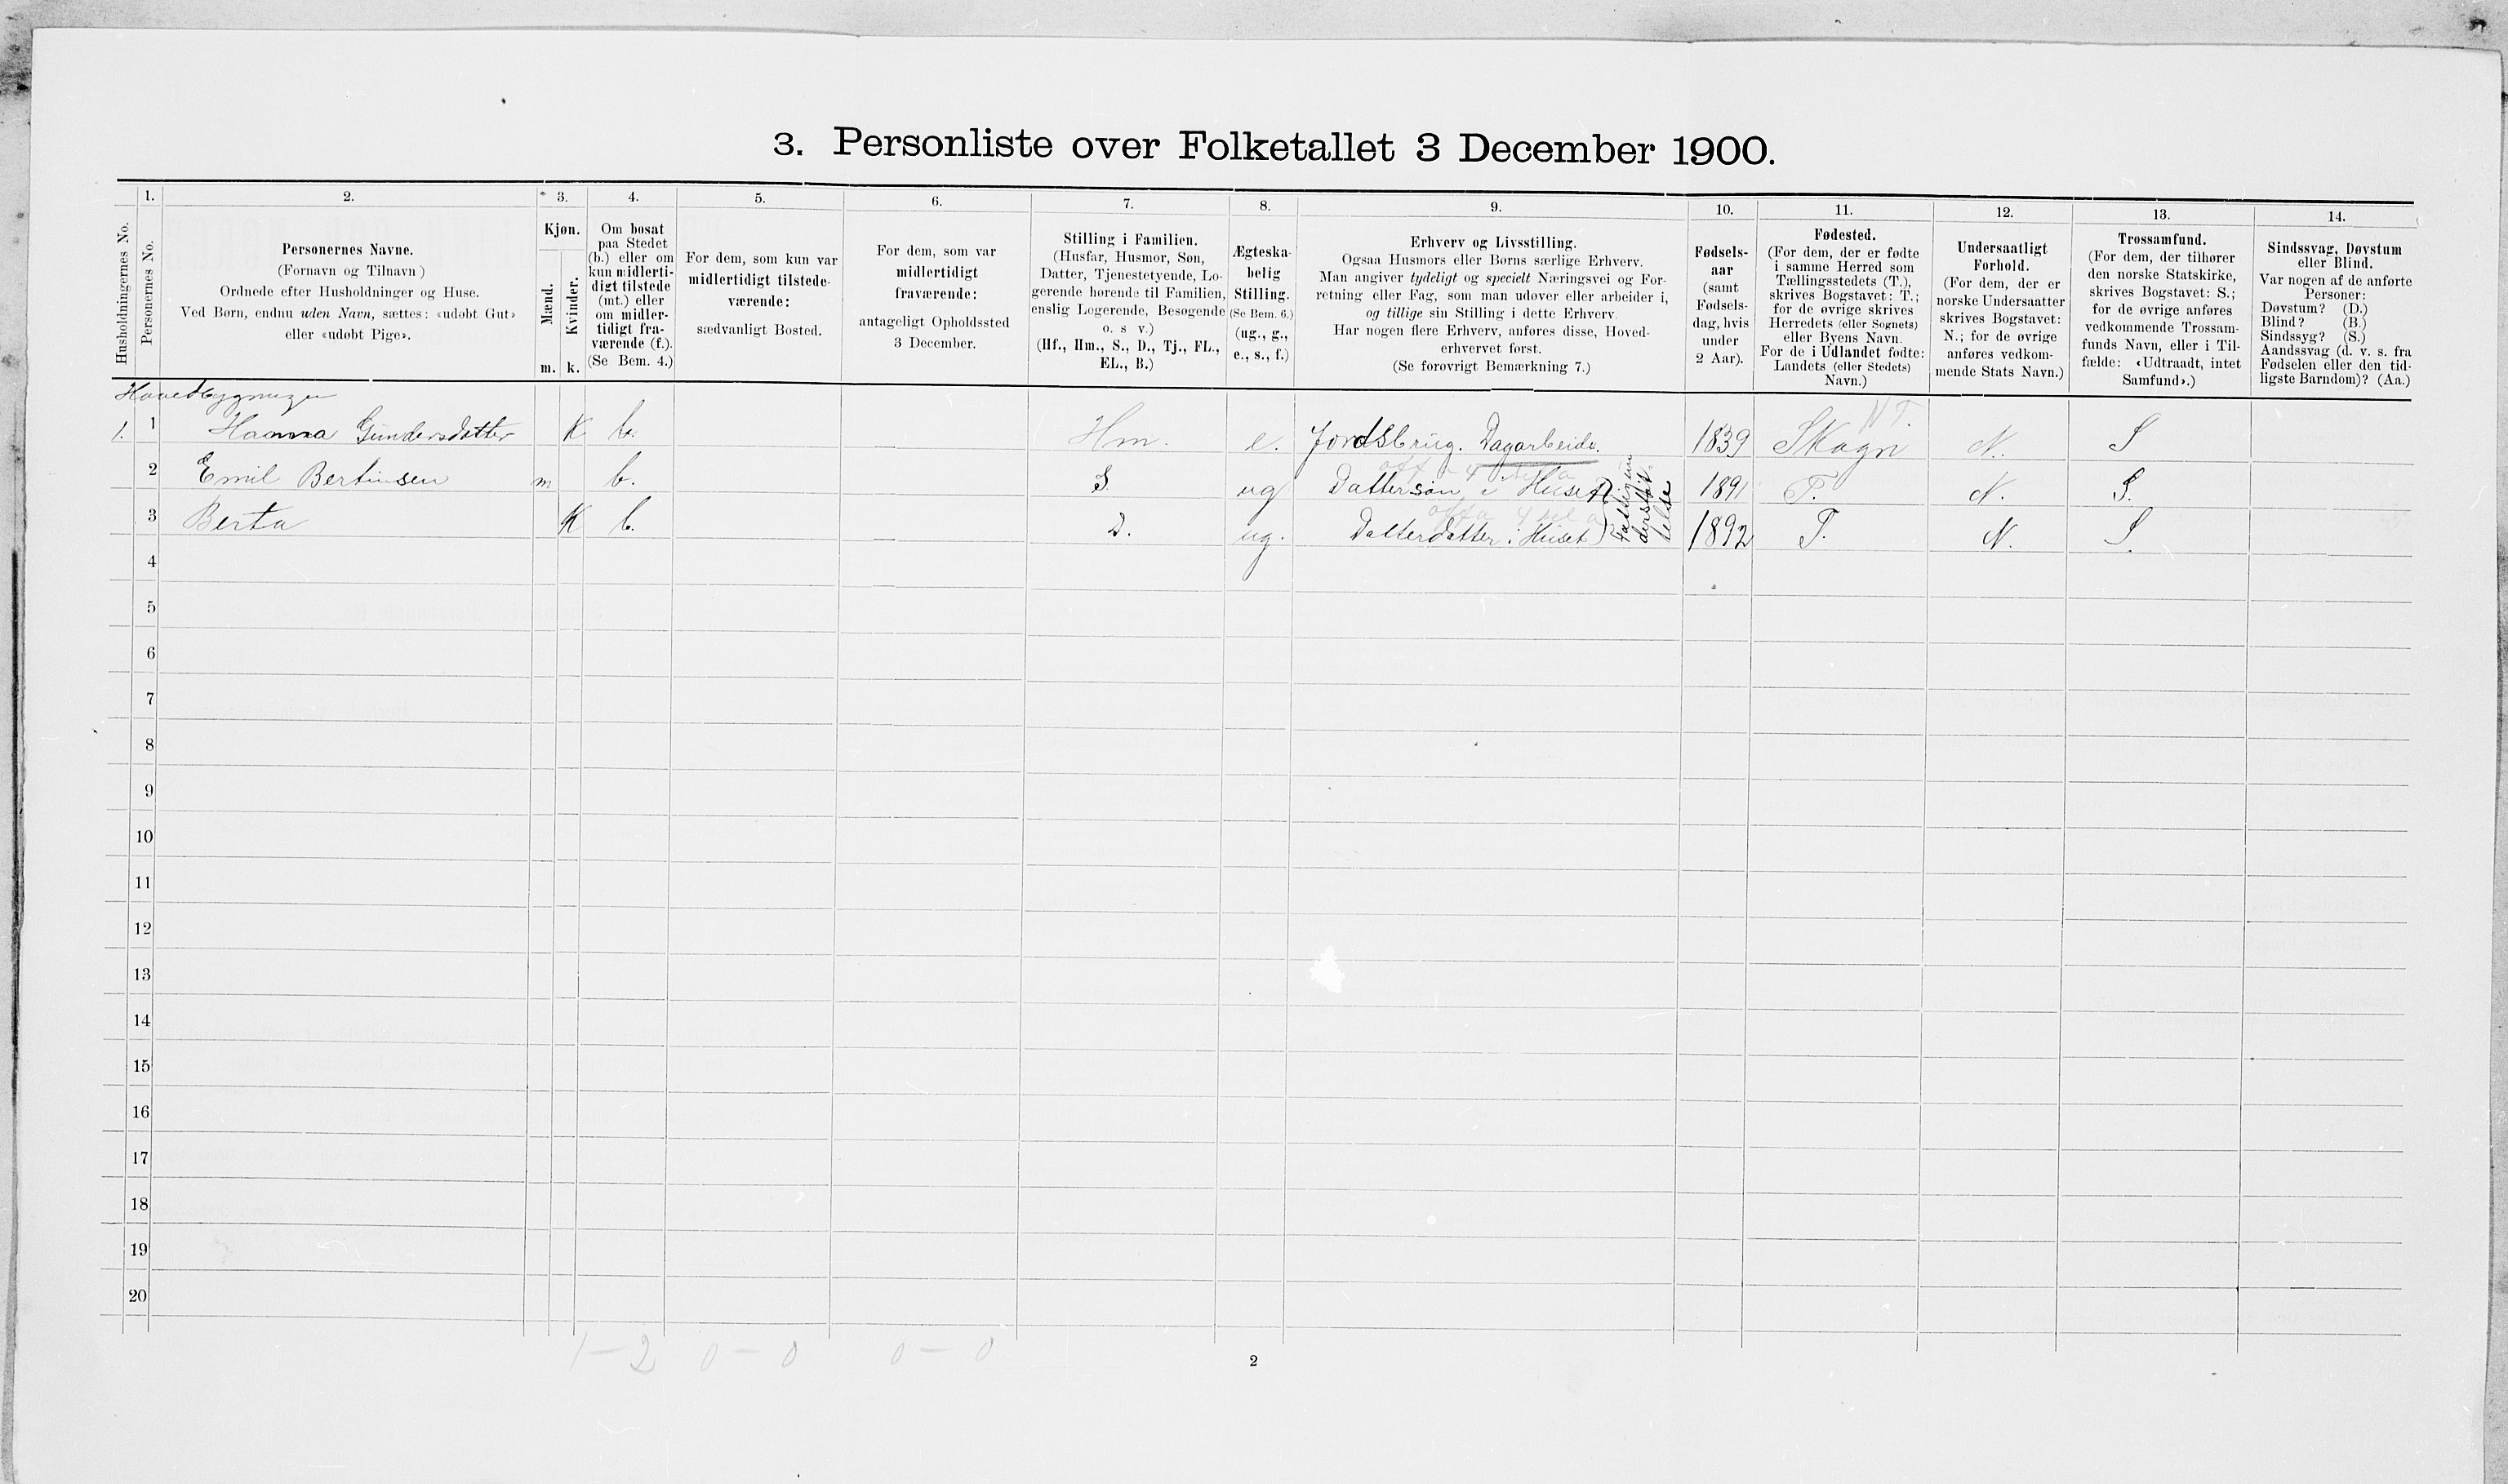 3. Personliste over Folketallet 3 December 1900.
Husholdningernes No.
1.
Personernes No.
2.
Personernes Navne.
(Fornavn og Tilnavn)
Ordnede efter Husholdninger og Huse.
Ved Børn, endnu uden Navn, sættes: «udøbt Gut»
eller «udøbt Pige».
3.
Kjøn.
Mænd.
Kvinder.
m. k.
4.
Om bosat
paa Stedet
(b.) eller om
kun midlerti-
digt tilstede
(mt.) eller
om midler-
tidigt fra-
værende (f.).
(Se Bem. 4.)
5.
For dem, som kun var
midlertidigt tilstede-
værende:
sædvanligt Bosted.
6.
For dem, som var
midlertidigt
fraværende:
antageligt Opholdssted
3 December.
7.
Stilling i Familien.
(Husfar, Husmor, Søn,
Datter, Tjenestetyende, Lo-
gerende hørende til Familien,
enslig Logerende, Besøgende
o. s v.)
(Hf., Hm., S., D., Tj., FL.,
EL., B.)
8.
Ægteska-
belig
Stilling.
(Se Bem. 6.)
(ug., g.,
e., s., f.)
9.
Erhverv og Livsstilling.
Ogsaa Husmors eller Børns særlige Erhverv.
Man angiver tydeligt og specielt Næringsvei og For-
retning eller Fag, som man udøver eller arbeider i,
og tillige sin Stilling i dette Erhverv.
Har nogen flere Erhverv, anføres disse, Hoved-
erhvervet først.
(Se forøvrigt Bemærkning 7.)
10.
Fødsels-
aar
(samt
Fødsels-
dag, hvis
under
2 Aar).
11.
Fødested.
(For dem, der er fødte
i samme Herred som
Tællingsstedets (T.),
skrives Bogstavet: T.;
for de øvrige skrives
Herredets (eller Sognets)
eller Byens Navn.
For de i Udlandet fødte:
Landets (eller Stedets)
Navn.)
12.
Undersaatligt
Forhold.
(For dem, der er
norske Undersaatter
skrives Bogstavet:
N.; for de øvrige
anføres vedkom-
mende Stats Navn.)
13.
Trossamfund.
(For dem, der tilhører
den norske Statskirke,
skrives Bogstavet: S.;
for de øvrige anføres
vedkommende Trossam-
funds Navn, eller i Til-
fælde: «Udtraadt, intet
Samfund».)
14.
Sindssvag, Døvstum
eller Blind.
Var nogen af de anførte
Personer:
Døvstum? (D.)
Blind? (B.)
Sindssyg? (S.)
Aandssvag (d. v. s. fra
Fødselen eller den tid-
ligste Barndom)? (Aa.)
Hovedbygningen
N T.
1. 1 Hanna Gundersdatter K b. Hm. e. Jordsbrug. Dagarbeide. 1839 Skogn N. S
2 Emil Bertinsen m b. S ug Dattersøn i Huset 1891 T. N. S.
3 Berta K b. D. ug. Datterdatter i Huset 1892 T. N. S.
Fattigun
derstøt
telse
4
5
6
7
8
9
10
11
12
13
14
15
16
17
18
19
20
1 – 2 0 – 0 0 – 0
2